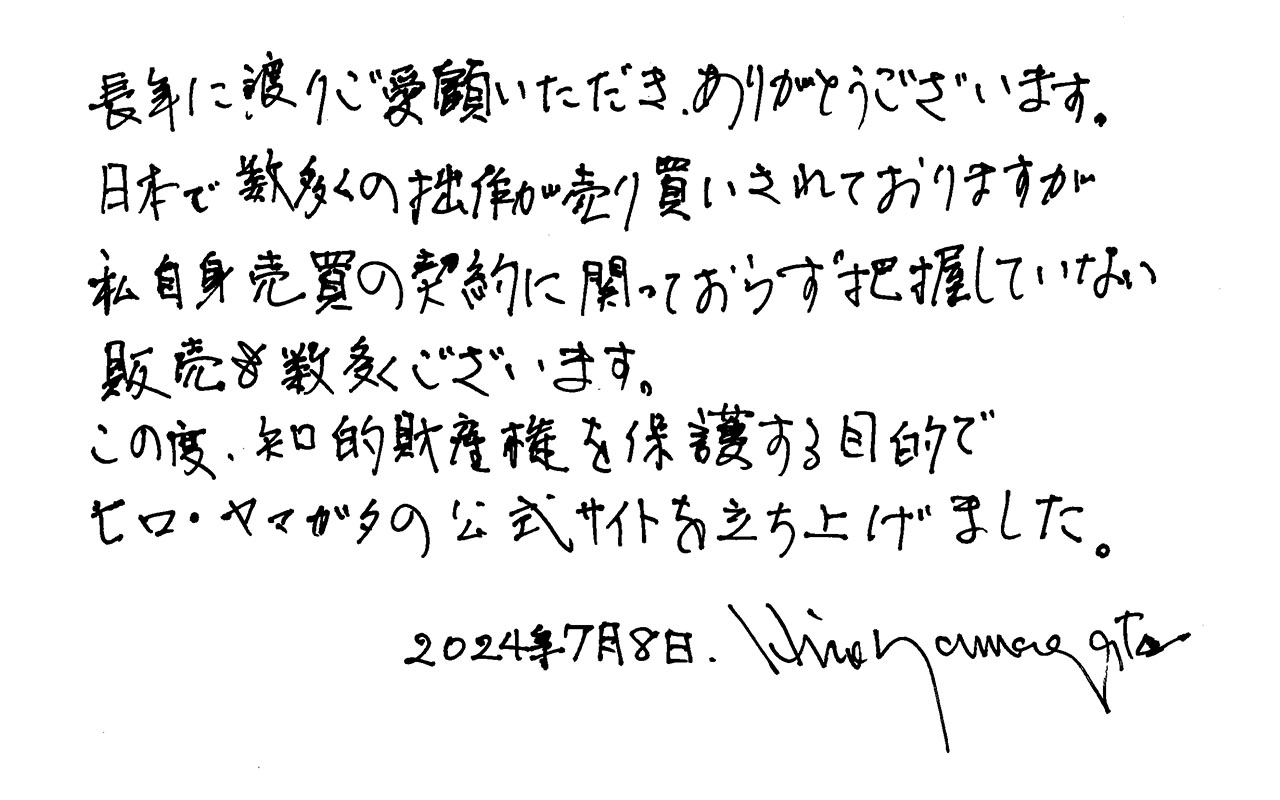 長年に渡りご愛顧いただき、ありがとうございます。
日本で数多くの拙作が売り買いされておりますが
私自身売買の契約に関っておらず把握していない
販売も数多くございます。
この度、知的財産権を保護する目的で
ヒロ・ヤマガタの公式サイトを立ち上げました。
2024年7月8日. Hiro Yamagata